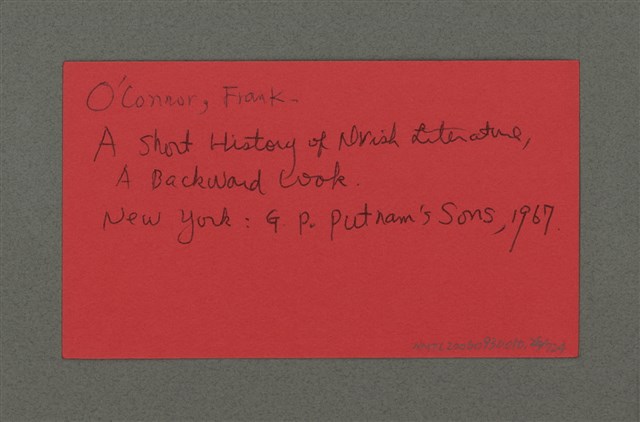 O'Connor, Frank.
A Short History of Irish Literature,
A Backward Look.
New York: G. P. Putnam's Sons, 1967.